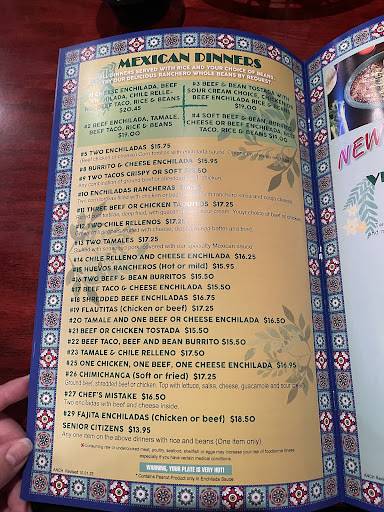 MEXICAN DINNERS
ALL DINNERS SERVED WITH RICE AND YOUR CHOICE OF BEANS
TRY OUR DELICIOUS RANCHERO WHOLE BEANS BY REQUEST
#1 CHEESE ENCHILADA, BEEF
ENCHILADA, CHILE RELLE-
BEEF TACO, RICE & BEANS
$20.45
#2 BEEF ENCHILADA, TAMALE,
BEEF TACO, RICE & BEANS
$19.00
#3 BEEF & BEAN TOSTADA WITH
SOUR CREAM CHOICE, CHICKEN OR
BEEF ENCHILADA RICE &
$19.00
#4 SOFT BEEF & BEAN, BURRITO
CHEESE OR BEEF ENCHILADA, BEEF
TACO, RICE & BEANS $19.00
#5 TWO ENCHILADAS $15.75
#8 BURRITO & CHEESE ENCHILADA $15.95
#9 TWO TACOS CRISPY OR SOFT
Any combination of ground beef or shredded chicken.
#10 ENCHILADAS RANCHERAS
#11 THREE BEEF OR CHICKEN TAQUITOS $17.25
#12 TWO CHILE RELLENOS $17.25
#13 TWO TAMALES $17.25
covered with our specialty Mexican sauce
#14 CHILE RELLENO AND CHEESE ENCHILADA $16.25
#15 HUEVOS RANCHEROS (Hot or mild) $15.95
#16 TWO BEEF & BEAN BURRITOS $15.50
#17 BEEF TACO & CHEESE ENCHILADA $15.50
#18 SHREDDED BEEF ENCHILADAS $16.75
#19 FLAUTITAS (Chicken or beef) $17.25
#20 TAMALE AND ONE BEEF OR CHEESE ENCHILADA $16.50
#21 BEEF OR CHICKEN TOSTADA $15.50
#22 BEEF TACO, BEEF AND BEAN BURRITO $15.50
#23 TAMALE & CHILE RELENO $17.50
#25 ONE CHICKEN, ONE BEEF, ONE CHEESE ENCHILADA $16.95
#26 CHIMICHANGA (Soft or fried) $17.25
Ground beef, shredded beef or chicken. Top with lettuce, salsa, cheese, guacamole and sour cream
#27 CHEF'S MISTAKE $16.50
Two enciladas with beef and cheese inside.
#29 FAJITA ENCHILADAS (Chicken or beef) $18.50
SENIOR CITIZENS $13.95
Any one item on the above dinners with rice and beans (One item only)
Consuming raw or undercooked meat, poultry, seafood, shellfish or eggs may increase your risk of foodborne illness
especially if you have certain medical conditions.
WARNING, YOUR PLATE IS VERY HOT!
* Contains Peanut Product only in Enchilada Sauce
NEW